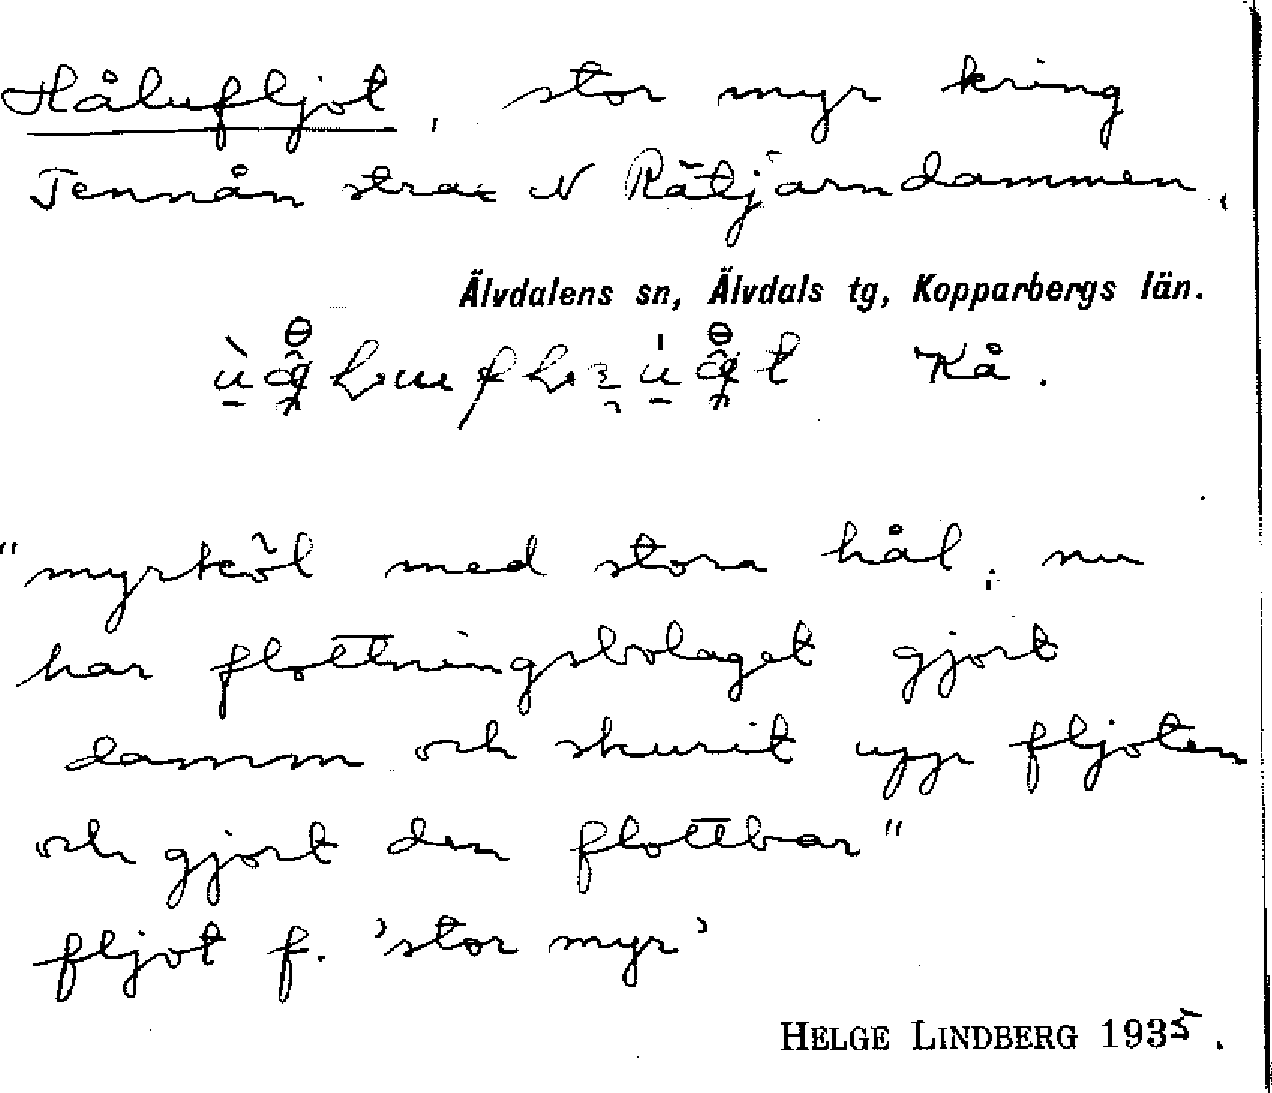 Hålufljot, stor myr kring
Tennån strax N Rätjärndammen.
Älvdalens sn, Älvdals tg, Kopparbergs län.
Kå.
"myrköl med stora hål; nu
har flottningsbolaget gjort
damm och skurit upp fljoten
och gjort den flottbar"
fljot f. 'stor myr'
HELGE LINDBERG 1935.